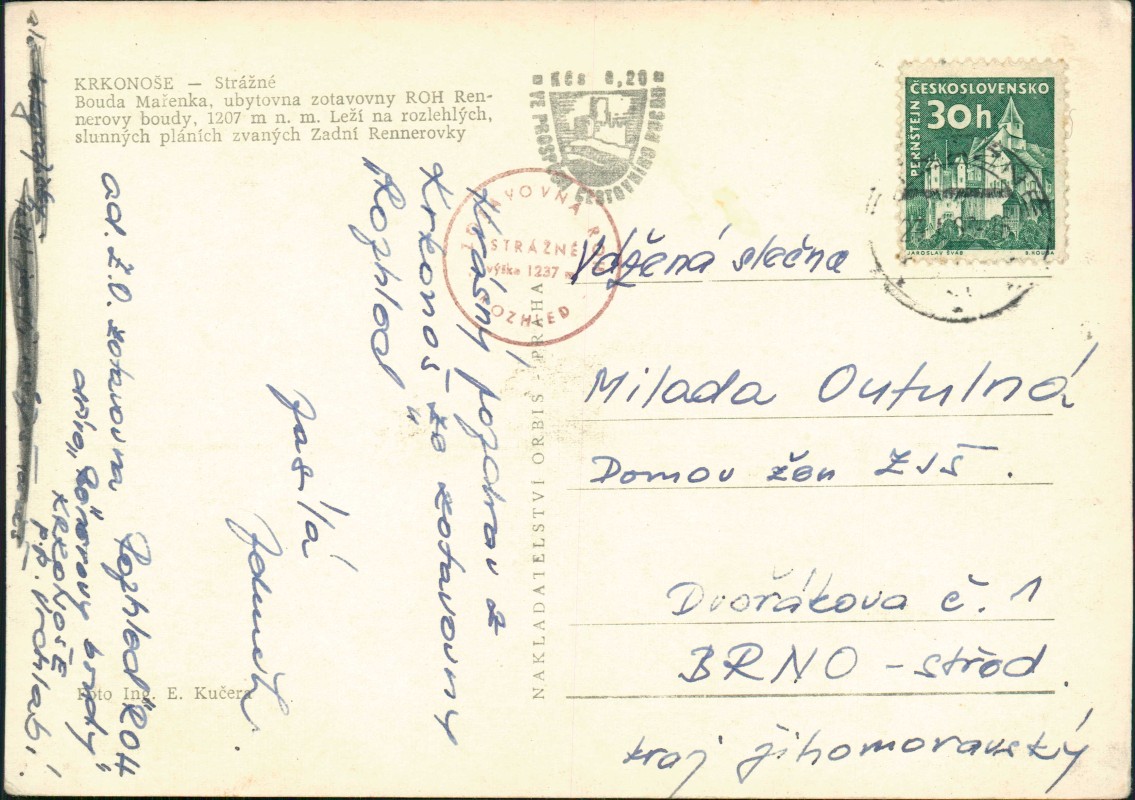 KRKONOŠE — Strážné
Bouda Mařenka, ubytovna zotavovny ROH Ren-
nerovy boudy, 1207 m n. m. Leží na rozlehlých,
slunných pláních zvaných Zadní Rennerovky
Kčs 0,20
VE PROSPĚCH CESTOVNÍHO RUCHU
ČESKOSLOVENSKO
30h
PERNŠTEJN
JAROSLAV ŠVÁB
ZOTAVOVNA ROH
STRÁŽNÉ
výška 1237 m
ROZHLED
Krásný pozdrav z
Krkonoš ze zotavovny
"Rozhled"
zasílá
ad. Z.O. zotavovna Rozhled "ROH
boudy"
KRKONOŠE
Vážená slečna
Milada
Domov žen
Dvořákova č. 1
BRNO - střed.
kraj jihomoravský
NAKLADATELSTVÍ ORBIS - PRAHA
Foto Ing. E. Kučera